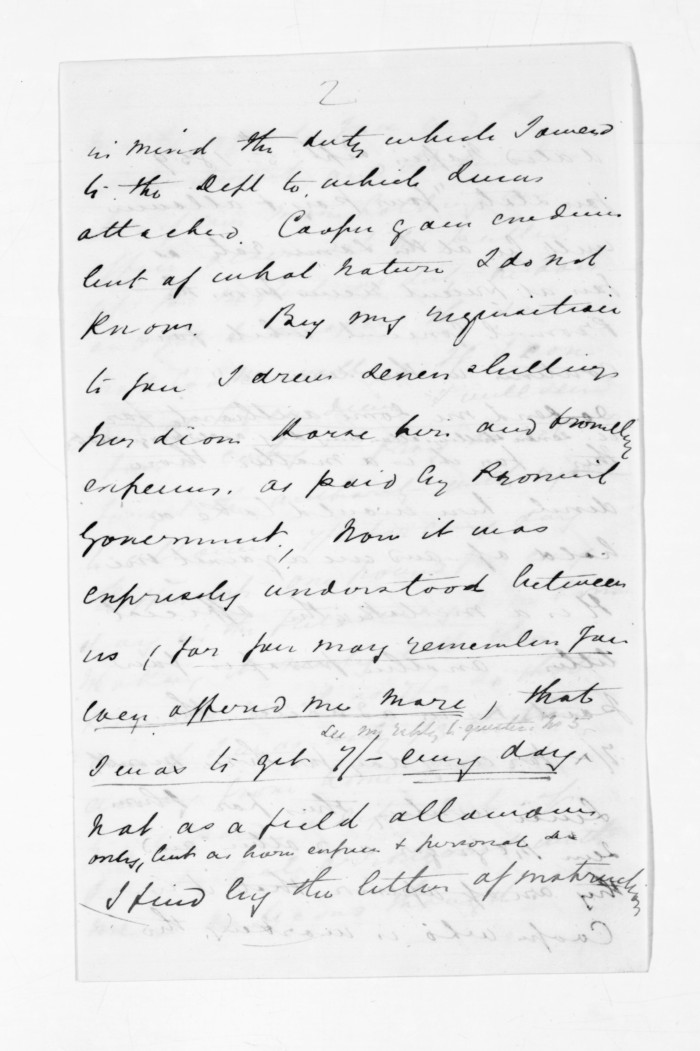 2
in mind the duty which I owed
to the Dept to which I was
attached. Cooper gave evidence
but of what nature I do not
know. By my requisition
to you I drew seven shillings
per diem horse hire and travelling
expenses. as paid by Provincial
Government, Now it was
expressly understood between
us, (for you may remember you
even offered me more, that
See my reply to question No 3
I was to get 7/- every day
not as a field allowance
only, but as horse expenses & personal do
I find by the letter of instruction